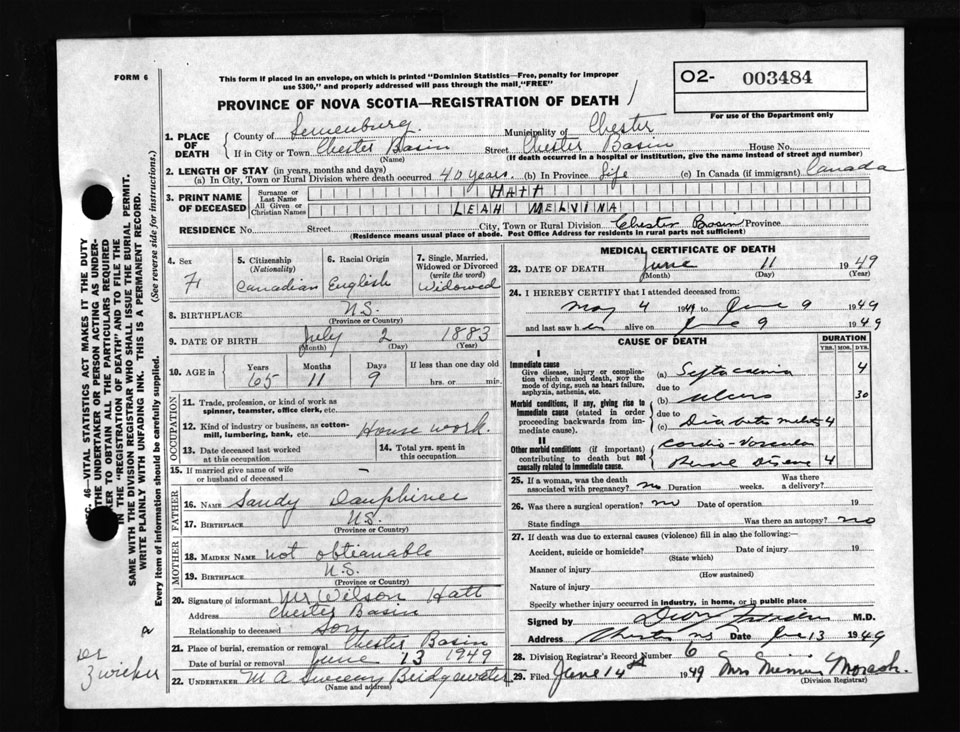 FORM 6
This form if placed in an envelope, on which is printed "Dominion Statistics—Free, penalty for improper
use $300," and properly addressed will pass through the mail, "FREE"
O2- 003484
For use of the Department only
PROVINCE OF NOVA SCOTIA—REGISTRATION OF DEATH
1. PLACE OF DEATH
County of Lunenburg. Municipality of Chester
If in City or Town Chester Basin Street Chester Basin House No.
(Name) (If death occurred in a hospital or institution, give the name instead of street and number)
2. LENGTH OF STAY (in years, months and days)
(a) In City, Town or Rural Division where death occurred 40 years. (b) In Province Life (c) In Canada (if immigrant) Canada
3. PRINT NAME OF DECEASED
Surname or Last Name HATT
All Given or Christian Names LEAH MELVINA
RESIDENCE No. Street City, Town or Rural Division Chester Basin Province
(Residence means usual place of abode. Post Office Address for residents in rural parts not sufficient)
4. Sex F
5. Citizenship (Nationality) Canadian
6. Racial Origin English
7. Single, Married, Widowed or Divorced (write the word) Widowed
8. BIRTHPLACE N.S.
(Province or Country)
9. DATE OF BIRTH July 2 1883
(Month) (Day) (Year)
10. AGE in Years 65 Months 11 Days 9 If less than one day old
hrs. or min.
OCCUPATION
11. Trade, profession, or kind of work as spinner, teamster, office clerk, etc.
12. Kind of industry or business, as cotton-mill, lumbering, bank, etc. House work.
13. Date deceased last worked at this occupation
14. Total yrs. spent in this occupation
15. If married give name of wife or husband of deceased —
FATHER
16. NAME Sandy Dauphinee
17. BIRTHPLACE N.S.
(Province or Country)
MOTHER
18. MAIDEN NAME not obtianable
19. BIRTHPLACE N.S.
(Province or Country)
20. Signature of informant Mr Wilson Hatt
Address Chester Basin
Relationship to deceased Son
21. Place of burial, cremation or removal Chester Basin
Date of burial or removal June 13 1949
22. UNDERTAKER M A Sweeny Bridgewater
(Name and address)
MEDICAL CERTIFICATE OF DEATH
23. DATE OF DEATH June 11 1949
(Month) (Day) (Year)
24. I HEREBY CERTIFY that I attended deceased from:
May 4 1949 to June 9 1949
and last saw her alive on June 9 1949
CAUSE OF DEATH
DURATION
YRS. MOS. DYS.
I
Immediate cause
Give disease, injury or complication which caused death, not the mode of dying, such as heart failure, asphyxia, asthenia, etc.
(a) Septocaemia 4
due to
(b) ulcers 30
Morbid conditions, if any, giving rise to immediate cause (stated in order proceeding backwards from immediate cause).
due to
(c) Diabetes melitis 4
II
Other morbid conditions (if important) contributing to death but not causally related to immediate cause.
Cardio-Vascular
Renal Disease 4
25. If a woman, was the death associated with pregnancy? no Duration weeks. Was there a delivery?
26. Was there a surgical operation? no Date of operation 19
State findings Was there an autopsy? no
27. If death was due to external causes (violence) fill in also the following:—
Accident, suicide or homicide? Date of injury 19
(State which)
Manner of injury
(How sustained)
Nature of injury
Specify whether injury occurred in industry, in home, or in public place
Signed by M.D.
Address Chester NS Date June 13 1949
28. Division Registrar's Record Number 6
29. Filed June 14 1949 Mrs Minnie Morash.
(Division Registrar)
SEC. 46—VITAL STATISTICS ACT MAKES IT THE DUTY
OF THE UNDERTAKER OR PERSON ACTING AS UNDER-
TAKER TO OBTAIN ALL THE PARTICULARS REQUIRED
IN THE "REGISTRATION OF DEATH" AND TO FILE THE
SAME WITH THE DIVISION REGISTRAR WHO SHALL ISSUE THE BURIAL PERMIT.
WRITE PLAINLY WITH UNFADING INK. THIS IS A PERMANENT RECORD.
Every item of information should be carefully supplied. (See reverse side for instructions.)
Dr
Zwicker